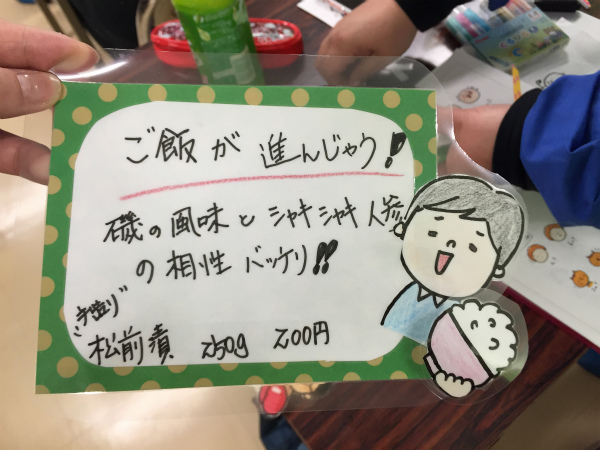 ご飯が進んじゃう!
磯の風味とシャキシャキ人参
の相性バッケリ!!
手造り
松前漬 250g 200円